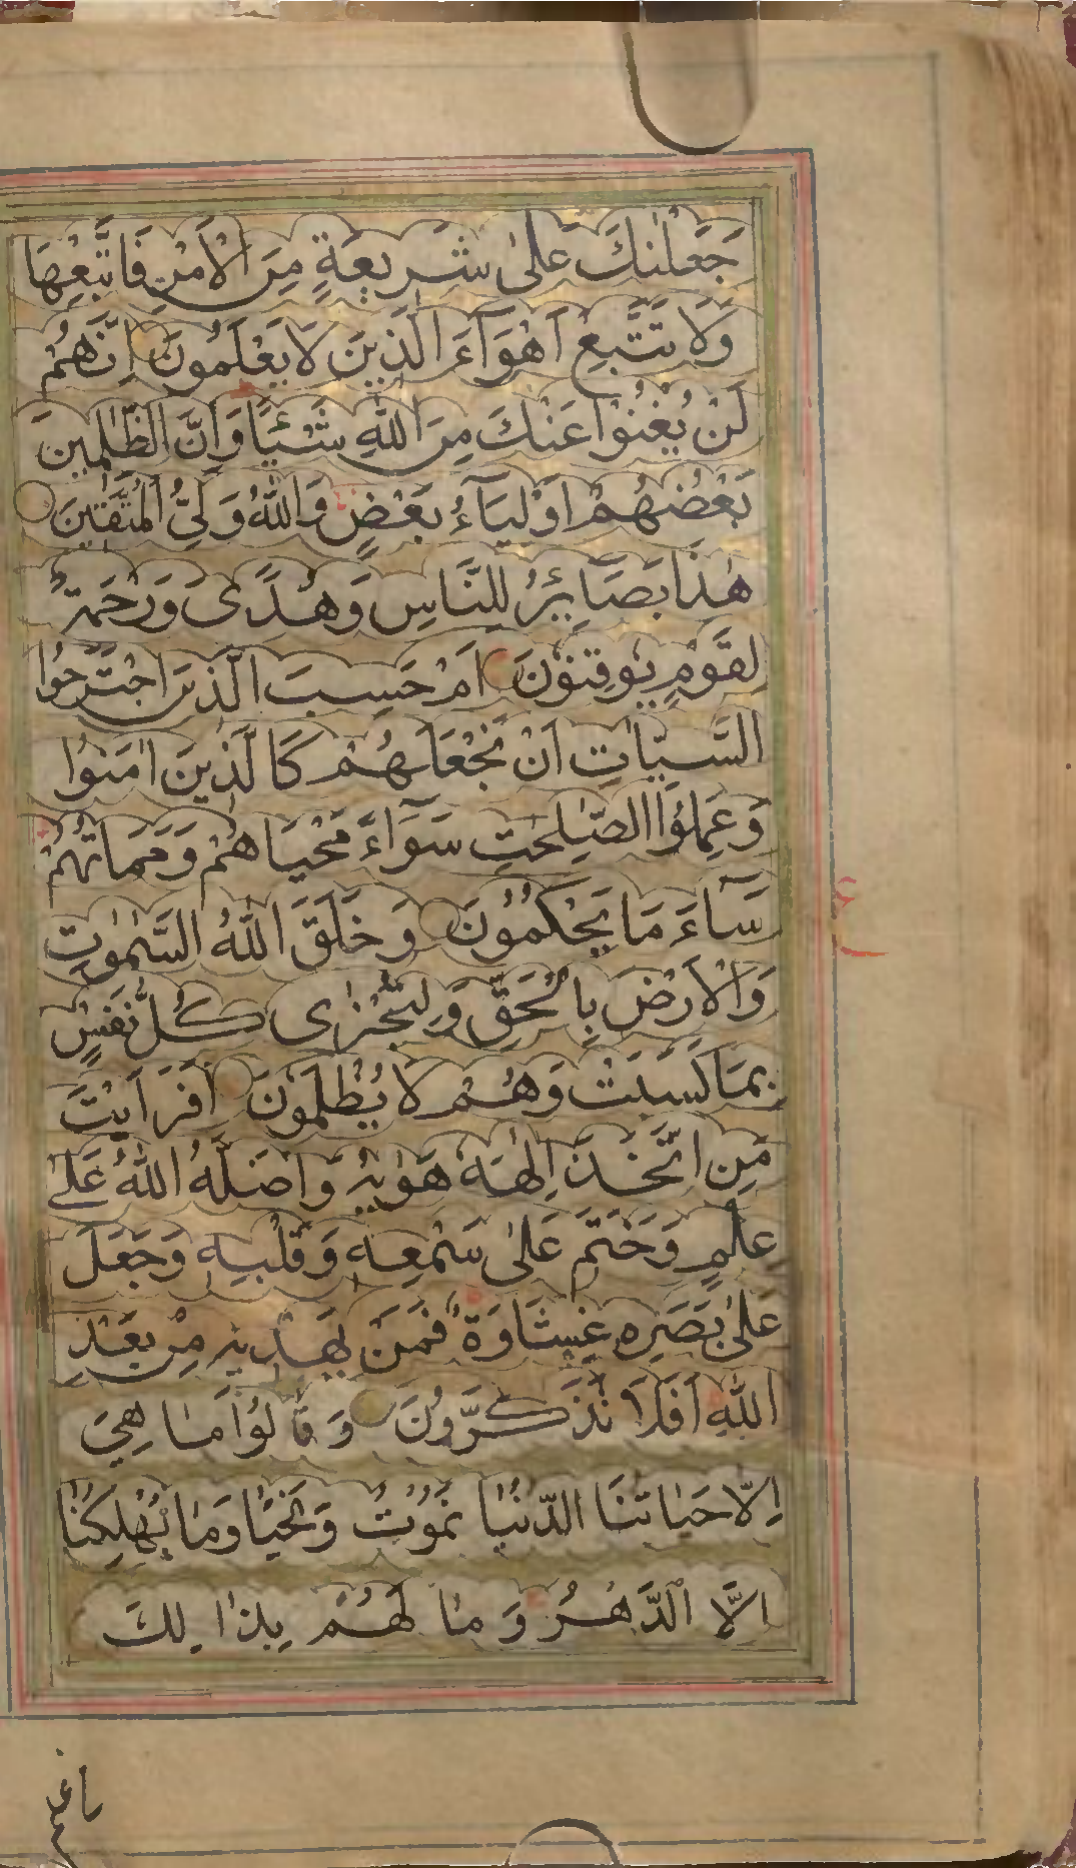 جَعَلْنٰكَ عَلٰى شَرِيعَةٍ مِنَ الْاَمْرِ فَاتَّبِعْهَا
وَلَا تَتَّبِعْ اَهْوَآءَ الَّذِينَ لَا يَعْلَمُونَ اِنَّهُمْ
لَنْ يُغْنُوا عَنْكَ مِنَ اللّٰهِ شَيْئًا وَاِنَّ الظّٰلِمِينَ
بَعْضُهُمْ اَوْلِيَآءُ بَعْضٍ وَاللّٰهُ وَلِىُّ الْمُتَّقِينَ
هٰذَا بَصَآئِرُ لِلنَّاسِ وَهُدًى وَرَحْمَةٌ
لِقَوْمٍ يُوقِنُونَ اَمْ حَسِبَ الَّذِينَ اجْتَرَحُوا
السَّيِّاٰتِ اَنْ نَجْعَلَهُمْ كَالَّذِينَ اٰمَنُوا
وَعَمِلُوا الصّٰلِحٰتِ سَوَآءً مَحْيَاهُمْ وَمَمَاتُهُمْ
سَآءَ مَا يَحْكُمُونَ وَخَلَقَ اللّٰهُ السَّمٰوٰتِ
وَالْاَرْضَ بِالْحَقِّ وَلِتُجْزٰى كُلُّ نَفْسٍ
بِمَا كَسَبَتْ وَهُمْ لَا يُظْلَمُونَ اَفَرَاَيْتَ
مَنِ اتَّخَذَ اِلٰهَهُ هَوٰيهُ وَاَضَلَّهُ اللّٰهُ عَلٰى
عِلْمٍ وَخَتَمَ عَلٰى سَمْعِهِ وَقَلْبِهِ وَجَعَلَ
عَلٰى بَصَرِهِ غِشَاوَةً فَمَنْ يَهْدِيهِ مِنْ بَعْدِ
اللّٰهِ اَفَلَا تَذَكَّرُونَ وَقَالُوا مَا هِىَ
اِلَّا حَيَاتُنَا الدُّنْيَا نَمُوتُ وَنَحْيَا وَمَا يُهْلِكُنَا
اِلَّا الدَّهْرُ وَمَا لَهُمْ بِذَالِكَ